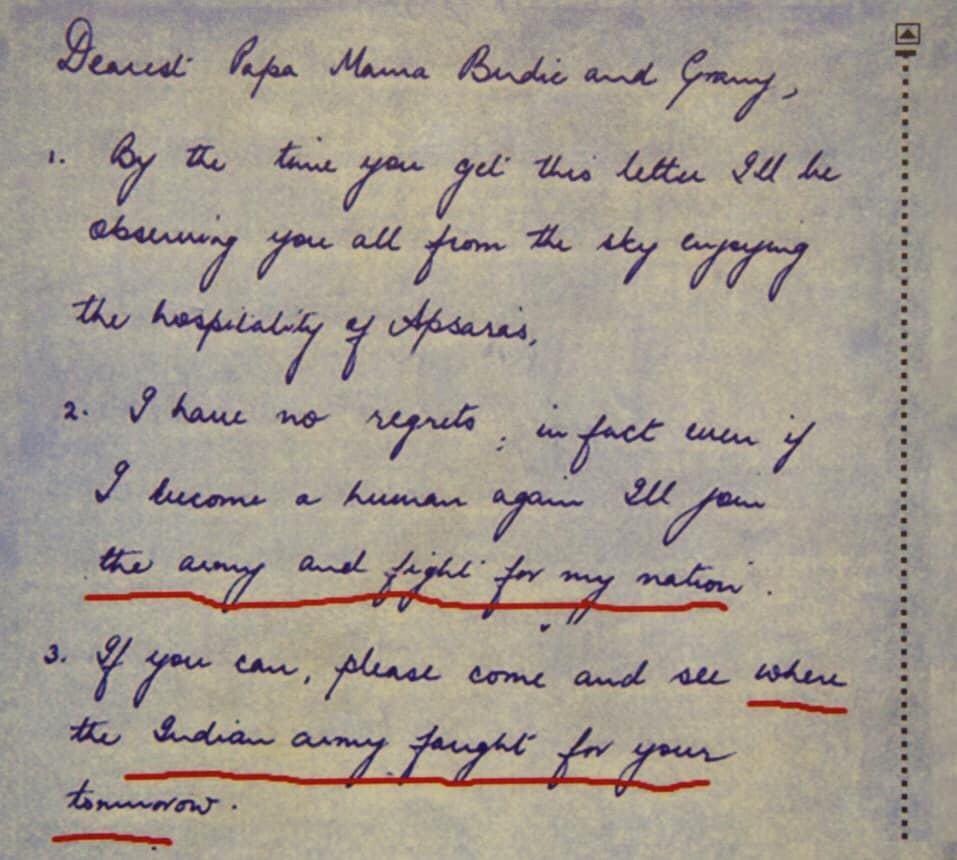 Dearest Papa Mama Birdie and Granny,
1. By the time you get this letter I'll be
observing you all from the sky enjoying
the hospitality of Apsaras.
2. I have no regrets, in fact even if
I become a human again I'll join
the army and fight for my nation.
3. If you can, please come and see where
the Indian army fought for your
tomorrow.